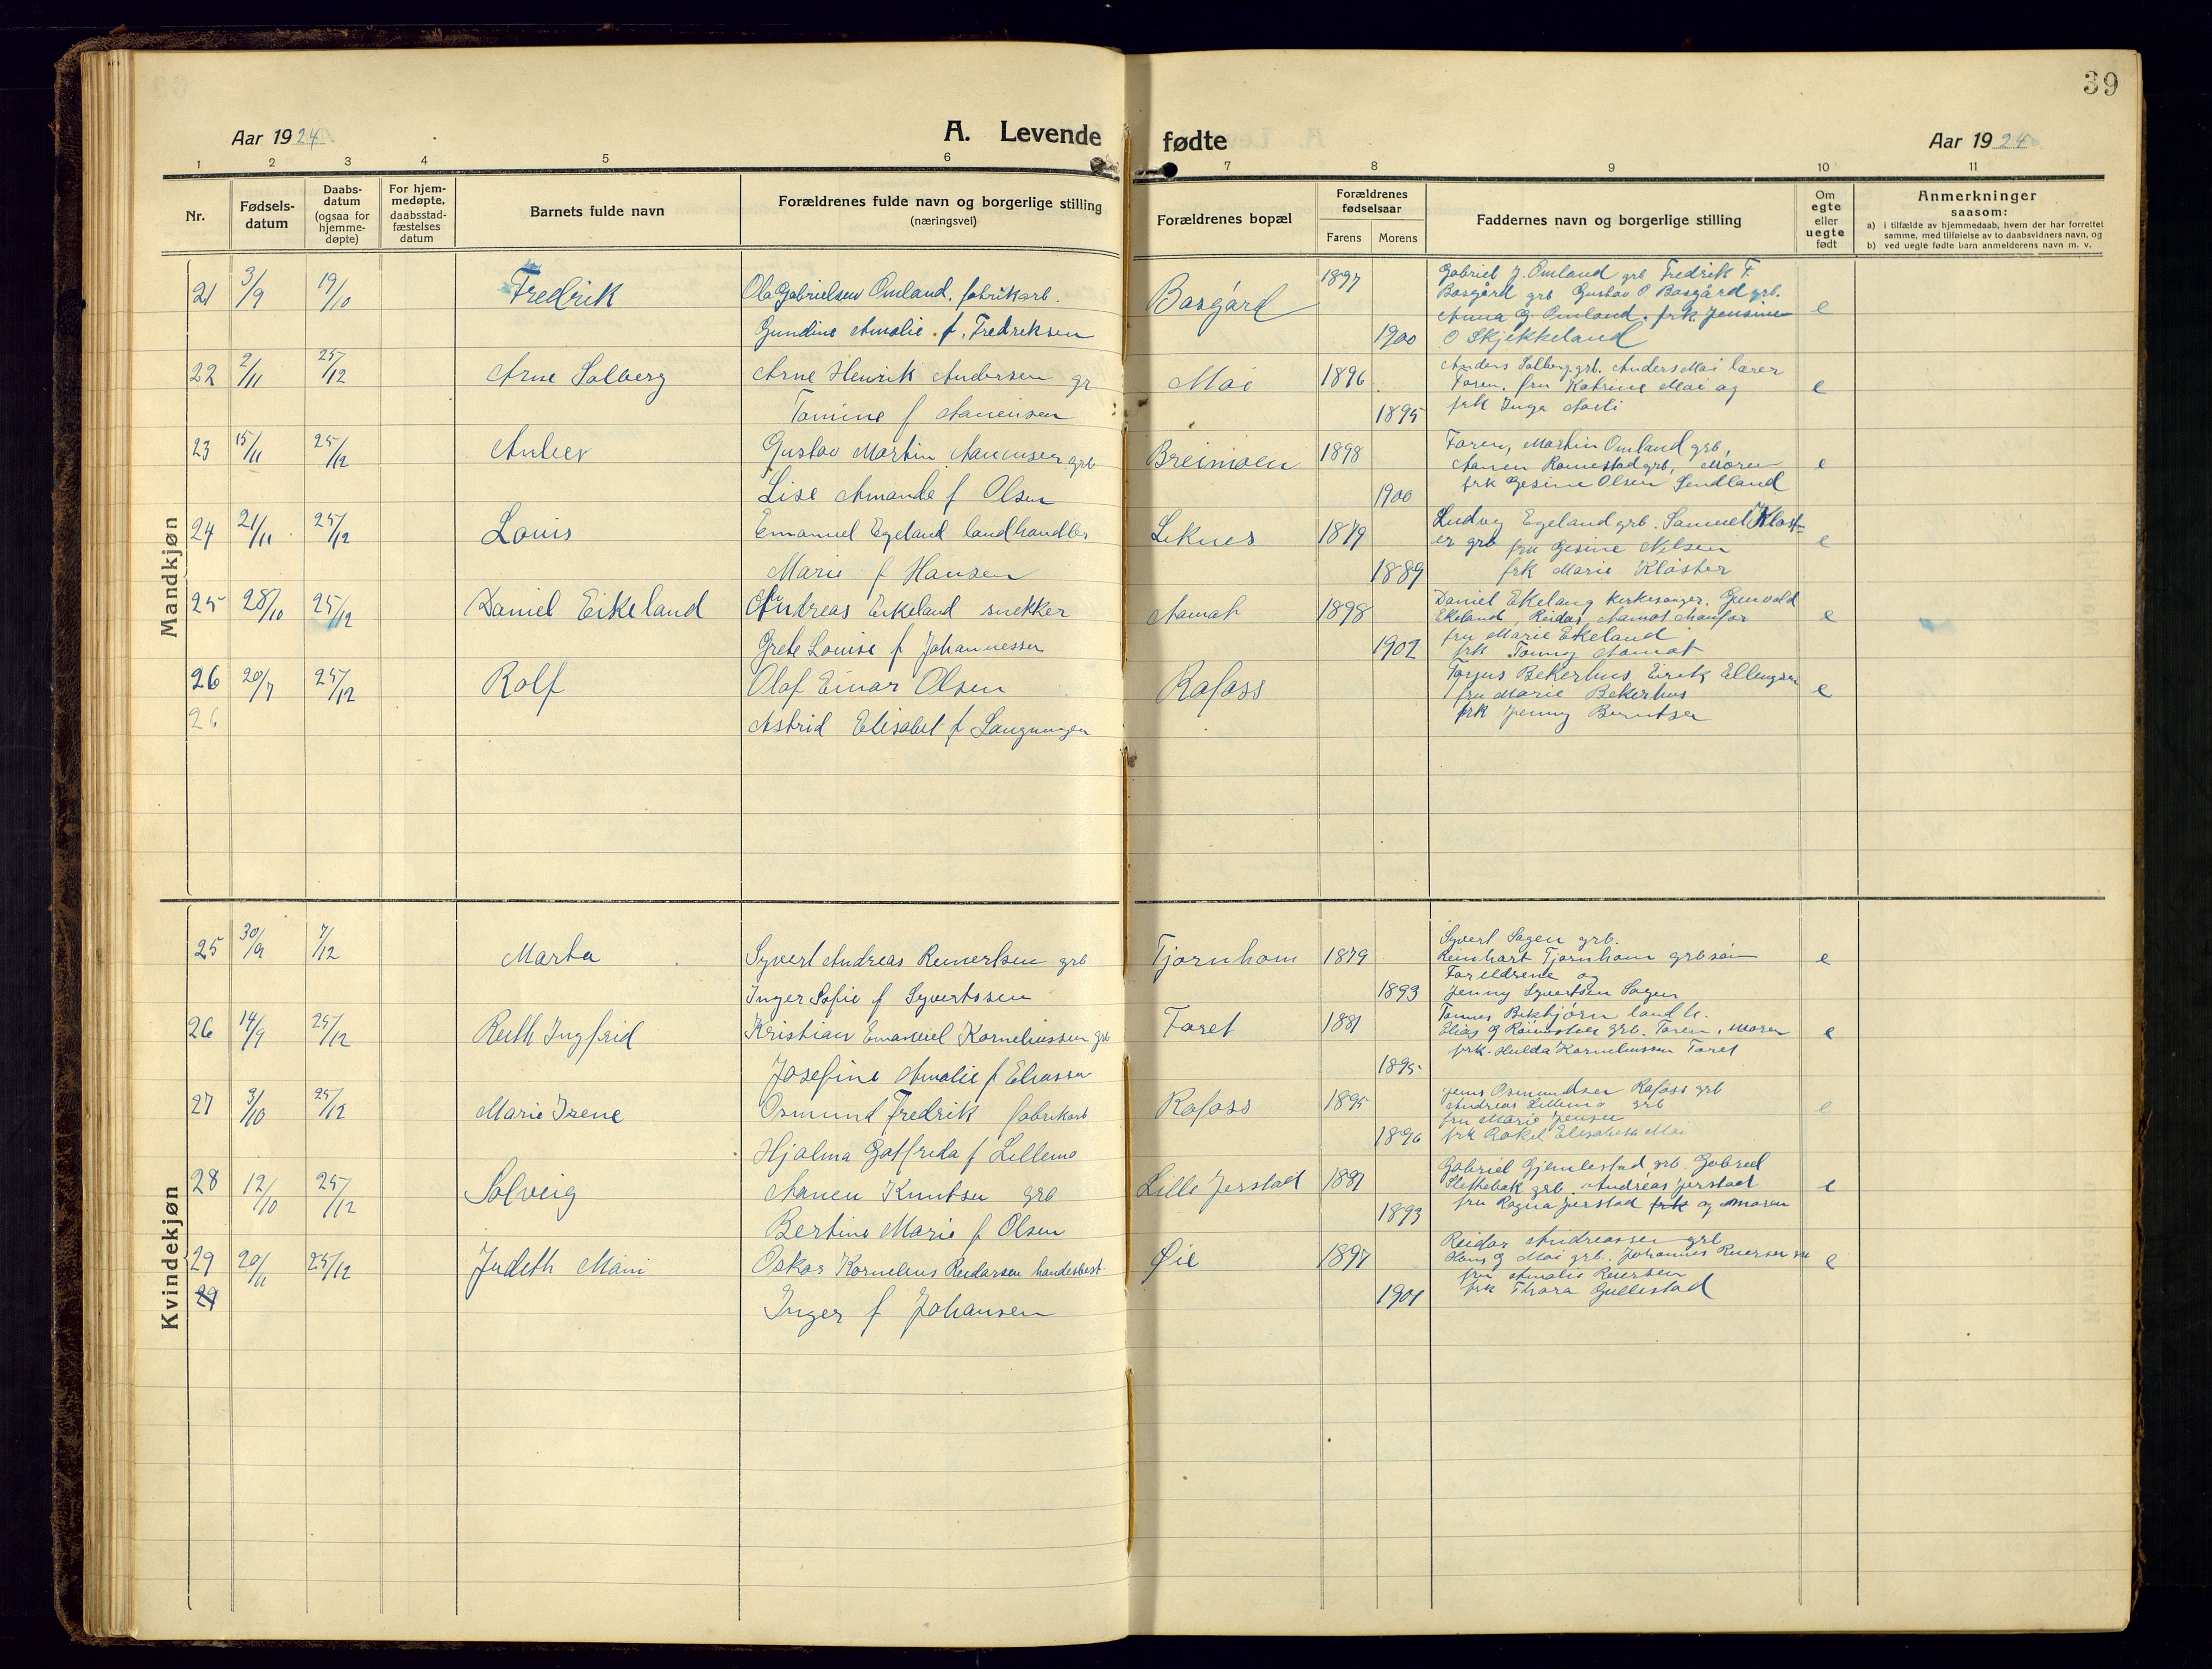 39
Aar 1924
A. Levende fødte
Aar 1924
1 2 3 4 5 6 7 8 9 10 11
Nr.
Fødsels-
datum
Daabs-
datum
(ogsaa for
hjemme-
døpte)
For hjem-
medøpte,
daabsstad-
fæstelses
datum
Barnets fulde navn
Forældrenes fulde navn og borgerlige stilling
(næringsvei)
Forældrenes bopæl
Forældrenes
fødselsaar
Farens Morens
Faddernes navn og borgerlige stilling
Om
egte
eller
uegte
født
Anmerkninger
saasom:
a) i tilfælde av hjemmedaab, hvem der har forrettet
samme, med tilføielse av to daabsvidners navn, og
b) ved uegte fødte barn anmelderens navn m. v.
Mandkjøn
21 3/9 19/10 Fredrik Ola Gabrielsen Omland, fabrikarb. Basgård 1897 Gabriel J. Omland grb Fredrik F.
Basgård grb Gustav O Basgård grb. e
Gundine Amalie f. Fredriksen Anna G. Omland. frk Jensine
1900 O Skjekkeland
22 2/11 25/12 Arne Solberg Arne Henrik Andersen gr Moi 1896 Anders Solberg grb. Anders Moi lærer
Faren, fru Katrine Moi og e
Tomine f Aanensen 1895 frk Inga
23 15/11 25/12 Gustav Martin Aanensen grb Breimoen 1898 Faren, Martin Omland grb,
Aanen Ramestad grb, Moren e
Lise Amanda f Olsen 1900 frk Gesine Olsen Sendland
24 21/11 25/12 Louis Emanuel Egeland landhandler Liknes 1879 Ludvig Egeland grb. Samuel Klost-
er grb fru Gesine Nilsen e
Marie f Hansen 1889 frk Marie Kloster
25 28/10 25/12 Daniel Eikeland Andreas Eikeland snekker Aamot 1898 Daniel Ekeland kirkesanger. Gunvald
Ekeland, Reidar Aamot e
Grete Louise f Johannessen 1902 fru Marie Ekeland
frk Tonny Aamot
26 20/7 25/12 Rolf Olaf Einar Olsen Rafoss Tarjus Bekerhus, Eirik Ellingsen
fru Marie Bekerhus e
26 Astrid Elisabet f frk Jenny Berntsen
Kvindekjøn
25 30/9 7/12 Marta Syvert Andreas Reinertsen grb Tjørnhom 1879 Syvert Sagen grb.
Reinhart Tjørnhom grbsøn e
Foreldrene og
Inger Sofie f Syvertsen 1893 Jenny Syvertsen Sagen
26 14/9 25/12 Ruth Ingfrid Kristian Emanuel Korneliussen grb Faret 1881 Tønnes Bekbjørn landh.
Elias G grb. Faren, moren e
Josefine Amalie f Eliassen 1895 frk. Hulda Korneliussen Faret
27 3/10 25/12 Marie Irene Osmund Fredrik fabrikarb Rafoss 1895 Jens Osmundsen Rafoss grb
Andreas Lillemo grb e
fru Marie Jensen
Hjalma Gotfreda f Lillemo 1896 frk Rakel Elisabeth Moi
28 12/10 25/12 Solveig Aanen Knutsen grb Lille Jerstad 1881 Gabriel Gjemlestad grb. Gabriel
Slettebak grb. Andreas Jerstad e
Bertine Marie f Olsen 1893 fru Ragna Jerstad frk og moren
29 20/11 25/12 Judith Oskar Kornelius Reidarsen handesbest. Øie 1897 Reidar Andreassen grb
Hans G Moi grb. Johannes e
29 Inger f Johansen 1901 fru Amalie
frk Thora Gullestad